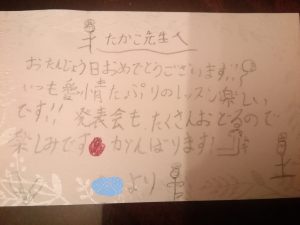 たかこ先生へ
おたんじょう日おめでとうございます!!
いつも愛情たっぷりのレッスン楽しい
です!! 発表会も、たくさんおどるので
楽しみです がんばります!
より